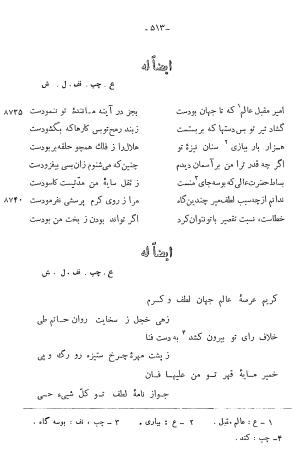 -۵۱۳-
ایضاً له
ع . چپ . نف . ل . ش
امیر مقبل عالم۱ که تا جهان بودست بجز در آینه مانندهٔ تو ننمودست
گشاد تیر تو بس دستها که بربستست زبند رمح تو بس کارها که بگشودست ۸۷۳۵
هزار بار بیازی۲ سنان نیزهٔ تو هلال را ز فلک همچو حلقه بربودست
اگر چه قدر ترا من بر آسمان دیدم چنین که می‌شنوم زان بسی بیفزودست
بساط حضرت عالی که بوسه جای۳ منست ز ثقل سایهٔ من مدتیست کاسودست
ندانم از چه سبب لطف میر چندین گاه مرا ز روی کرم پرسشی نفرمودست ۸۷۴۰
خطاست، نسبت تقصیر با تو نتوان کرد اگر تواند بودن ز بخت من بودست
ایضاً له
ع . چپ . نف . ل . ش
کریم عرصهٔ عالم جهان لطف و کرم
زهی خجل ز سخایت روان حاتم طی
خلاف رای تو بیرون کشد۴ به دست فنا
ز پشت مهرهٔ چرخ ستیزه رو رگ و پی
خمیر مایهٔ قهر تو من علیها فان
جواز نامهٔ لطف تو کل شیء حی
۱ - ع : عالم مقبل . ۲ - ع : بیاری . ۳ - چپ ، نف : بوسه گاه .
۴- چپ : کند .